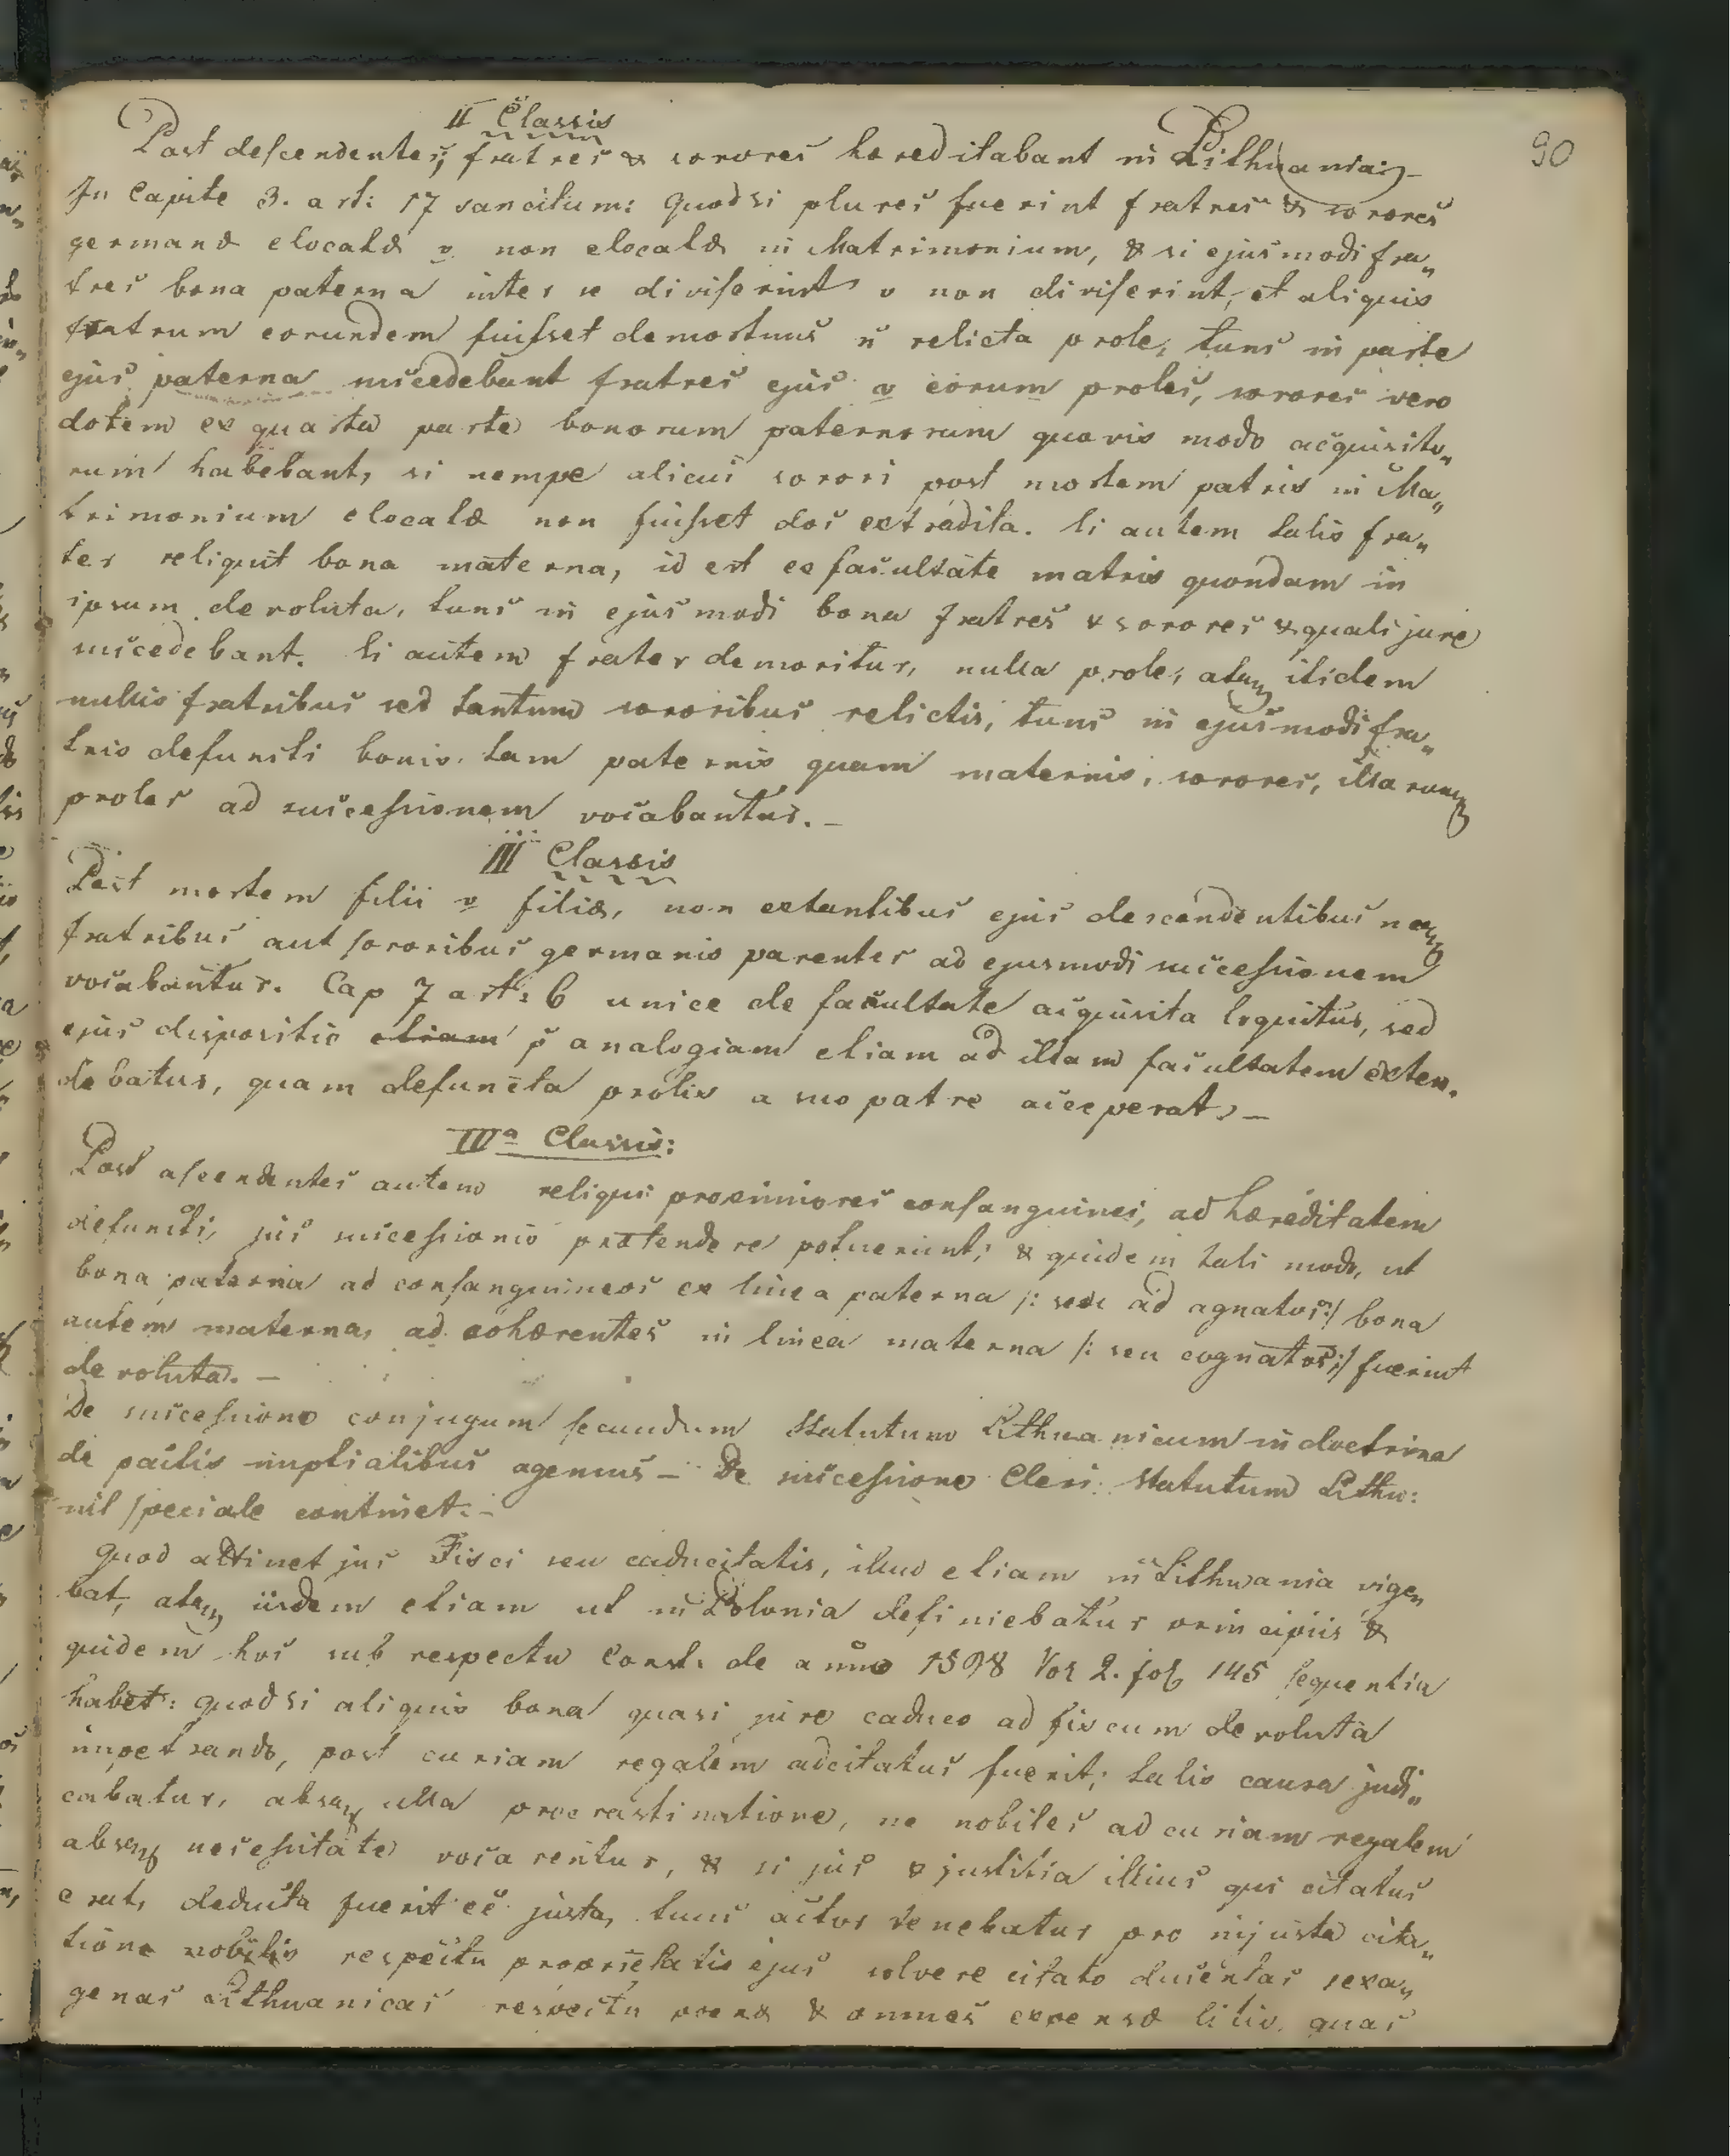 90
II Classis
Post descendentes, fratres & sorores haereditabant in Lithuania.-
In Capite 3. art: 17 sancitum: quodsi plures fuerint fratres & sorores
germanæ elocatæ v. non elocatæ in Matrimonium, & si ejusmodi fra„
tres bona paterna inter se diviserint v non diviserint, et aliquis
fratrum eorundem fuisset demortuus ñ relicta prole, tunc in parte
ejus paterna succedebant fratres ejus v eorum proles, sorores vero
dotem ex quarta parte bonorum paternorum quovis modo acquisito„
rum habebant, si nempe alicui sorori post mortem patris in Ma„
trimonium elocatæ non fuisset dos extradita. Si autem talis fra„
ter reliquit bona materna, id est ex facultate matris quondam in
ipsum devoluta, tunc in ejusmodi bona fratres & sorores æquali jure
succedebant. Si autem frater demoritur, nulla prole, atq itidem
nullis fratribus sed tantum sororibus relictis, tunc in ejusmodi fra„
tris defuncti bonis tam paternis quam maternis, sorores, illarumq
proles ad successionem vocabantur.-
III Classis
Post mortem filii v filiæ, non extantibus ejus descendentibus neq
fratribus aut sororibus germanis parentes ad ejusmodi successionem
vocabantur. Cap 7 art: 6 unice de facultate acquisita loquitur, sed
ejus dispositio etiam p analogiam etiam ad illam facultatem exten„
debatur, quam defuncta prolis a suo patre acceperat.-
IVa Classis:
Post ascendentes autem reliqui proximiores consanguinei, ad hæreditatem
defuncti, jus successionis prætendere potuerunt; & quidem tali modo, ut
bona paterna ad consanguineos ex linea paterna /: seu ad agnatos:/ bona
autem materna, ad cohærentes in linea materna /: seu cognatos:/ fuerint
devoluta.-
De successione conjugum secundum Statutum Lithuanicum in doctrina
de pactis nuptialibus agemus- De successione Cleri Statutum Lithu:
nil speciale continet.-
Quod attinet jus Fisci seu caducitatis, illud etiam in Lithuania vige„
bat, atq iisdem etiam ut in Polonia definiebatur principiis &
quidem hoc sub respectu Const. de anno 1598 Vol 2. fol 145 sequentia
habet: quodsi aliquis bona quasi jure caduco ad fiscum devoluta
impetrando, post curiam regalem adcitatus fuerit; talis causa judi„
cabatur, absq ulla procrastinatione, ne nobiles ad curiam regalem
absq necessitate vocarentur, & si jus & justitia illius qui citatus
erat, deducta fuerit eë justa, tunc actor tenebatur pro injusta cita„
tione nobilis respectu proprietatis ejus solvere citato ducentas sexa„
genas Lithuanicas respectu poenæ & omnes expensæ litis, quas